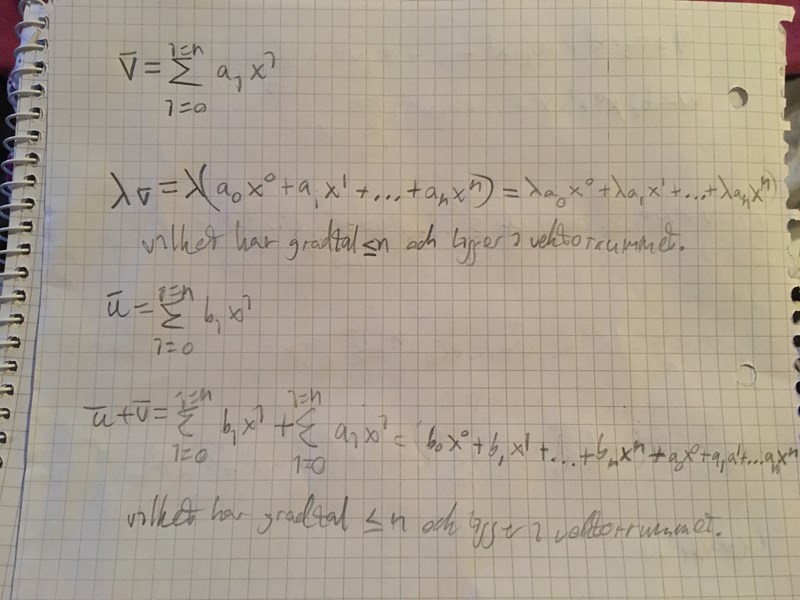 v̄ = ∑_{i=0}^{i=n} a_i x^i
λv̄ = λ(a_0 x^0 + a_1 x^1 + ... + a_n x^n) = λa_0 x^0 + λa_1 x^1 + ... + λa_n x^n)
vilket har gradtal ≤ n och ligger i vektorrummet.
ū = ∑_{i=0}^{i=n} b_i x^i
ū + v̄ = ∑_{i=0}^{i=n} b_i x^i + ∑_{i=0}^{i=n} a_i x^i = (b_0 x^0 + b_1 x^1 + ... + b_n x^n + a_0 x^0 + a_1 a^1 + ... a_n x^n
vilket har gradtal ≤ n och ligger i vektorrummet.